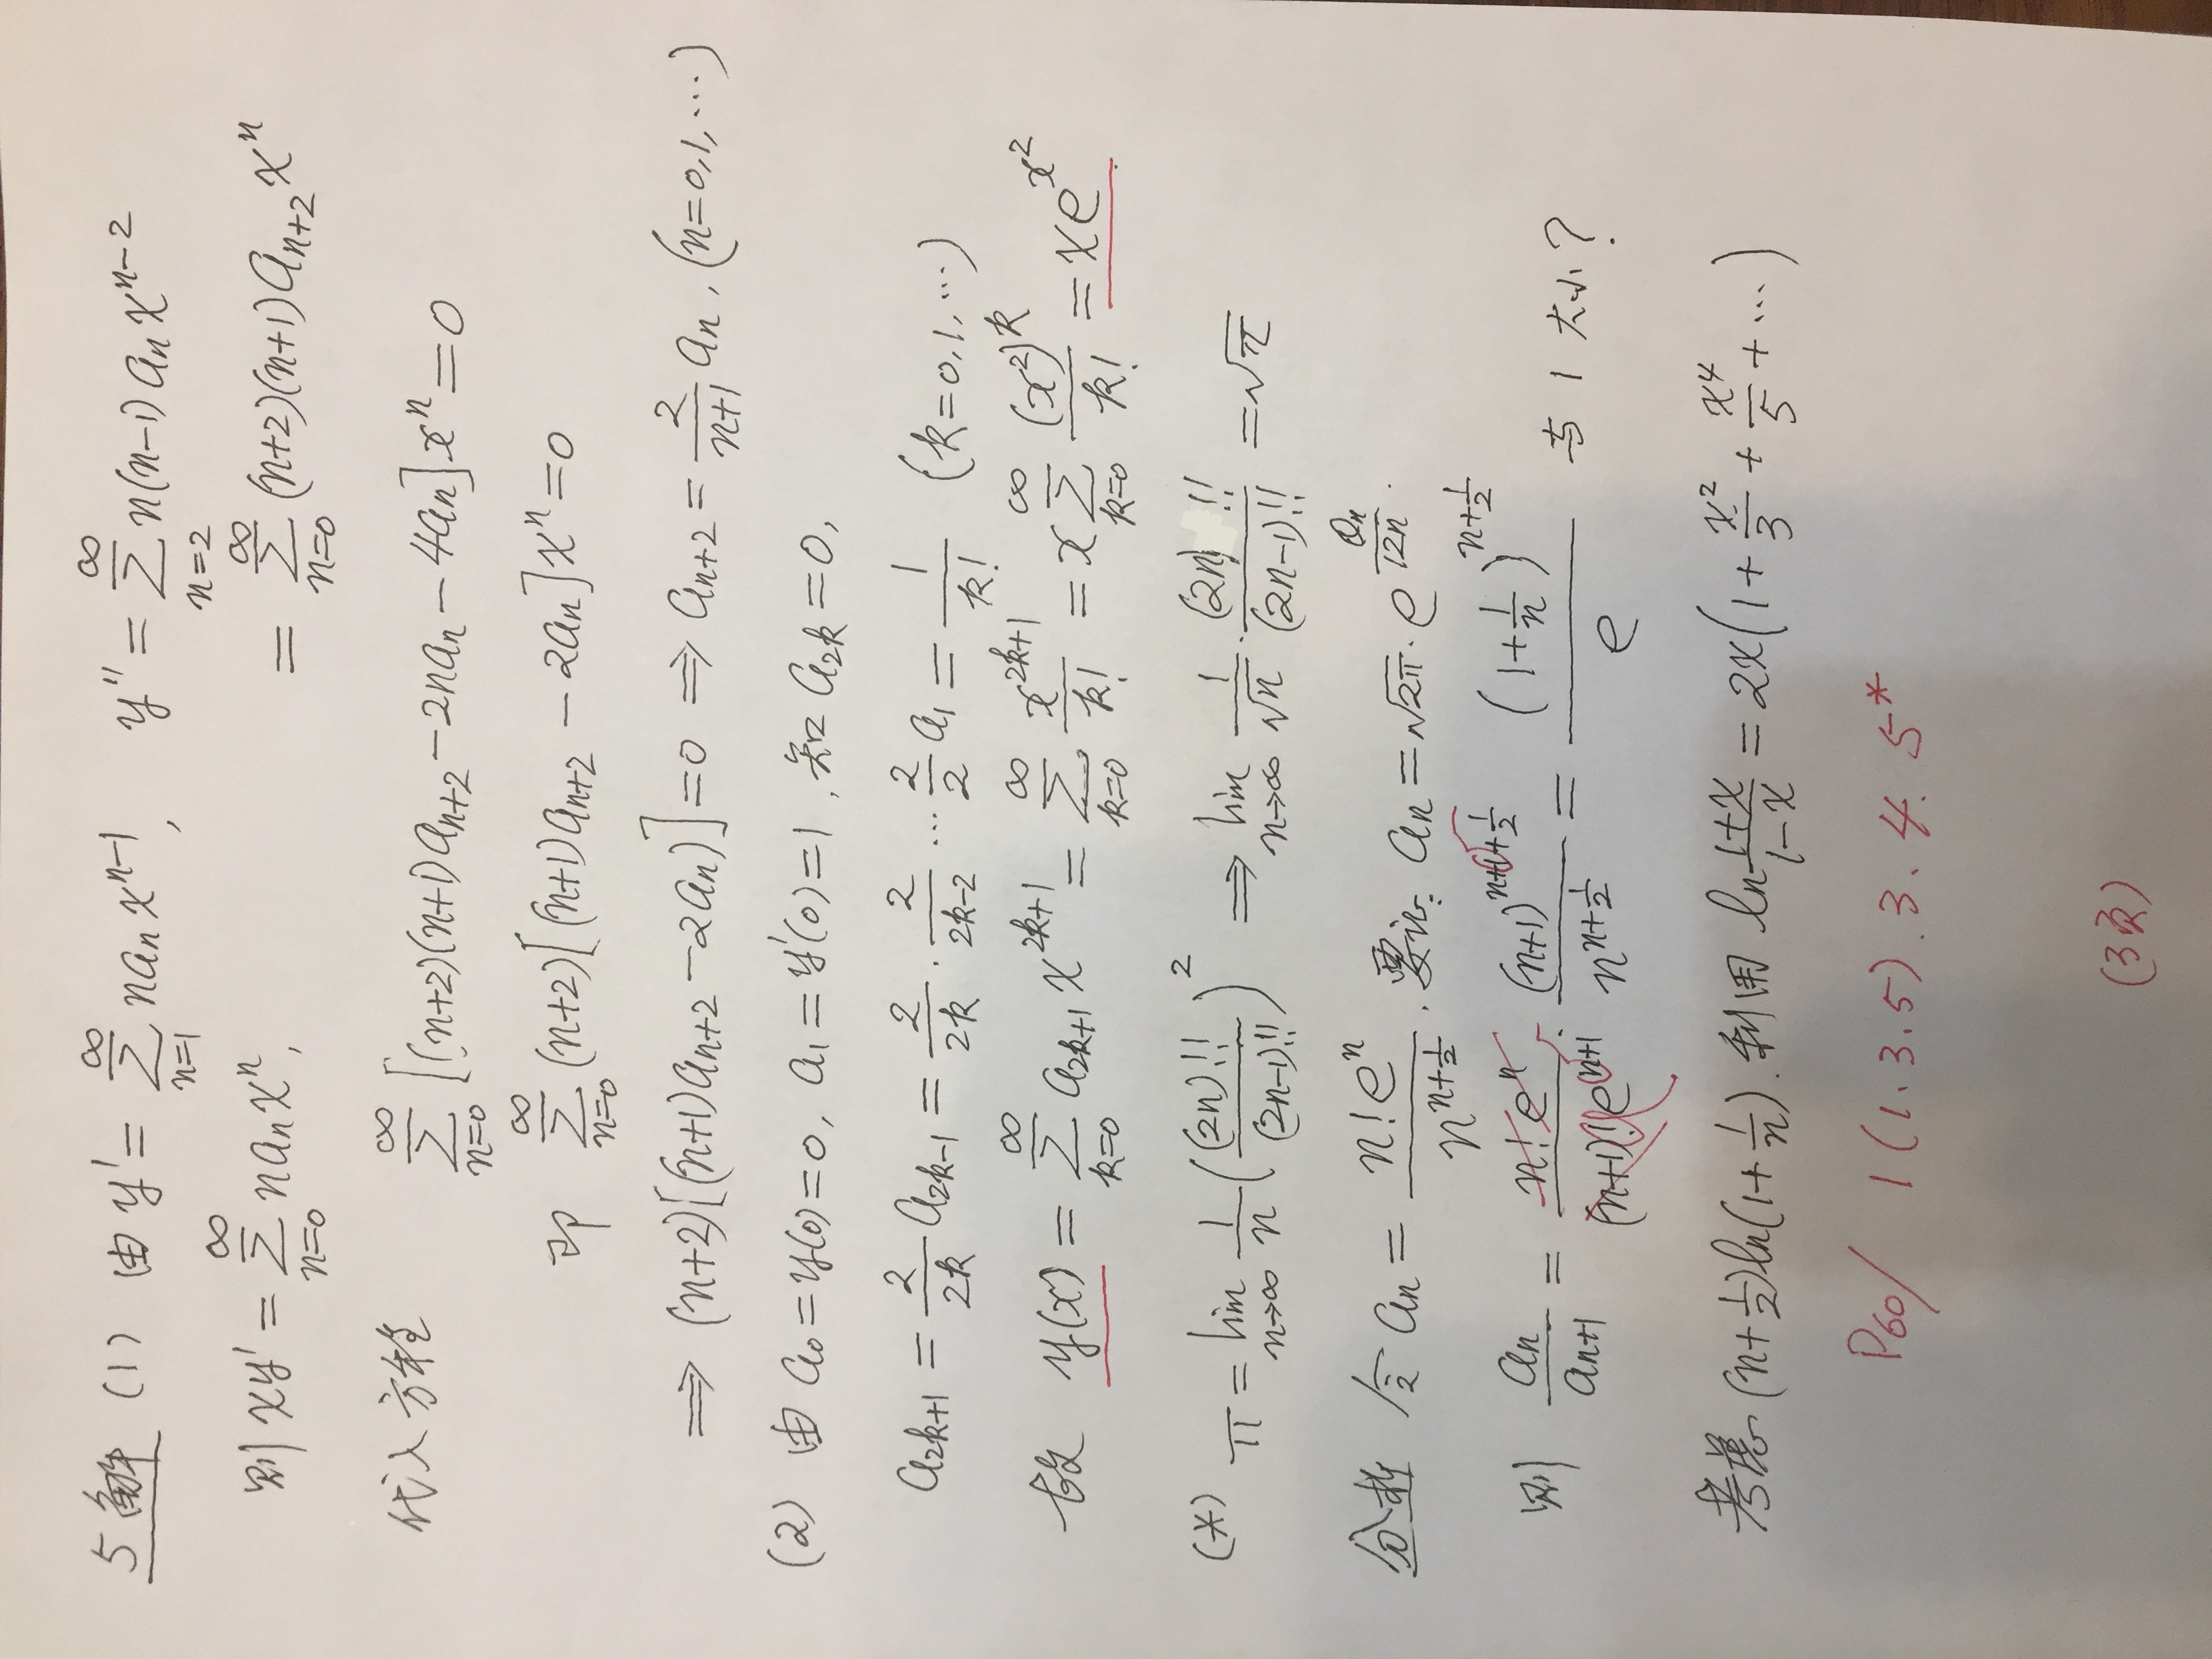 5 解 (1) 由 y' = ∑_{n=1}^{∞} n a_n x^{n-1}, y'' = ∑_{n=2}^{∞} n(n-1) a_n x^{n-2}
则 xy' = ∑_{n=0}^{∞} n a_n x^n, = ∑_{n=0}^{∞} (n+2)(n+1) a_{n+2} x^n
代入方程 ∑_{n=0}^{∞} [(n+2)(n+1) a_{n+2} - 2n a_n - 4a_n] x^n = 0
即 ∑_{n=0}^{∞} (n+2)[(n+1) a_{n+2} - 2a_n] x^n = 0
⇒ (n+2)[(n+1) a_{n+2} - 2a_n)] = 0 ⇒ a_{n+2} = \frac{2}{n+1} a_n, (n=0,1,⋯)
(2) 由 a_0 = y(0) = 0, a_1 = y'(0) = 1, 知 a_{2k} = 0,
a_{2k+1} = \frac{2}{2k} a_{2k-1} = \frac{2}{2k} · \frac{2}{2k-2} ⋯ \frac{2}{2} a_1 = \frac{1}{k!} (k=0,1,⋯)
故 y(x) = ∑_{k=0}^{∞} a_{2k+1} x^{2k+1} = ∑_{k=0}^{∞} \frac{x^{2k+1}}{k!} = x ∑_{k=0}^{∞} \frac{(x^2)^k}{k!} = x e^{x^2}.
(*) π = lim_{n→∞} \frac{1}{n} (\frac{(2n)!!}{(2n-1)!!})^2 ⇒ lim_{n→∞} \frac{1}{√n} · \frac{(2n)!!}{(2n-1)!!} = √π
分析 令 a_n = \frac{n! e^n}{n^{n+\frac{1}{2}}}. 要证: a_n = √2π · e^{\frac{θ_n}{12n}}.
则 \frac{a_n}{a_{n+1}} = \frac{n! e^n}{(n+1)! e^{n+1}} · \frac{(n+1)^{n+1+\frac{1}{2}}}{n^{n+\frac{1}{2}}} = \frac{(1+\frac{1}{n})^{n+\frac{1}{2}}}{e} 与 1 大小?
考虑 (n+\frac{1}{2}) ln(1+\frac{1}{n}). 利用 ln \frac{1+x}{1-x} = 2x(1 + \frac{x^2}{3} + \frac{x^4}{5} + ⋯)
P60/ 1(1.3.5). 3. 4. 5*
(3页)